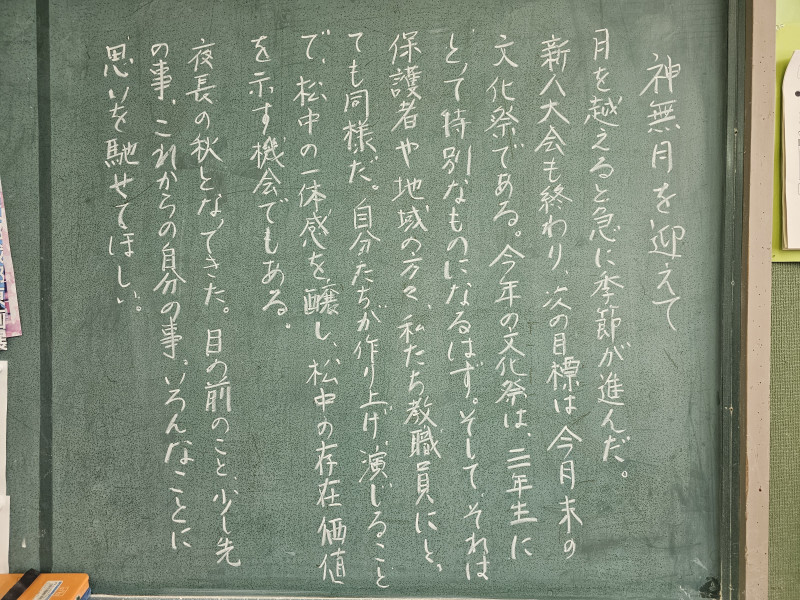 神無月を迎えて
月を越えると急に季節が進んだ。
新人大会も終わり、次の目標は今月末の
文化祭である。今年の文化祭は、三年生に
とって特別なものになるはず。そして、それは
保護者や地域の方々、私たち教職員にとっ
ても同様だ。自分たちが作り上げ、演じること
で、松中の一体感を醸し、松中の存在価値
を示す機会でもある。
夜長の秋となってきた。目の前のこと、少し先
の事、これからの自分の事。いろんなことに
思いを馳せてほしい。